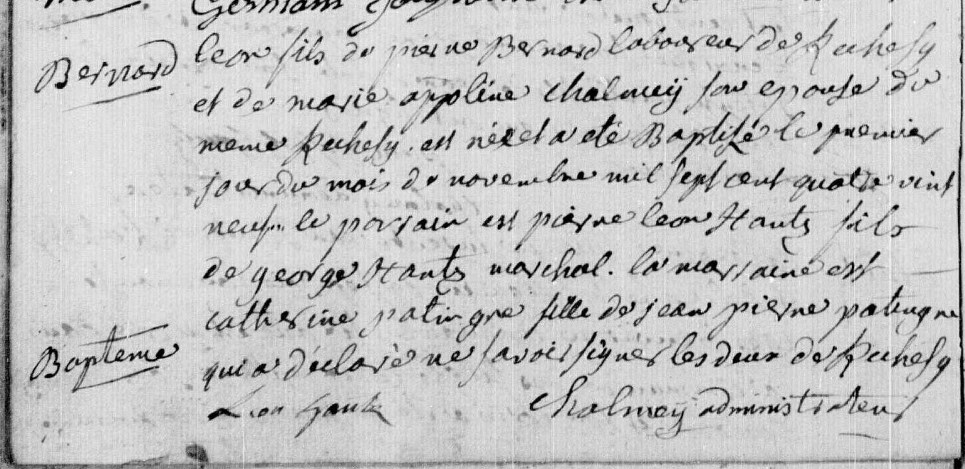 Bernard
leon fils de pierre Bernard laboureur de Rechesy
et de marie appline chalmeÿ son epouse du
meme Rechesy. est né et a eté Baptisé le premier
jour du mois de novembre mil sept cent quatre vint
neuf... le parrain est pierre leon Hantz fils
de george Hantz marchal. la marraine est
catherine patingne fille de jean pierre patingne
qui a déclaré ne savoir signer les deux de Rechesy
Bapteme
Leon hantz chalmeÿ administrateur